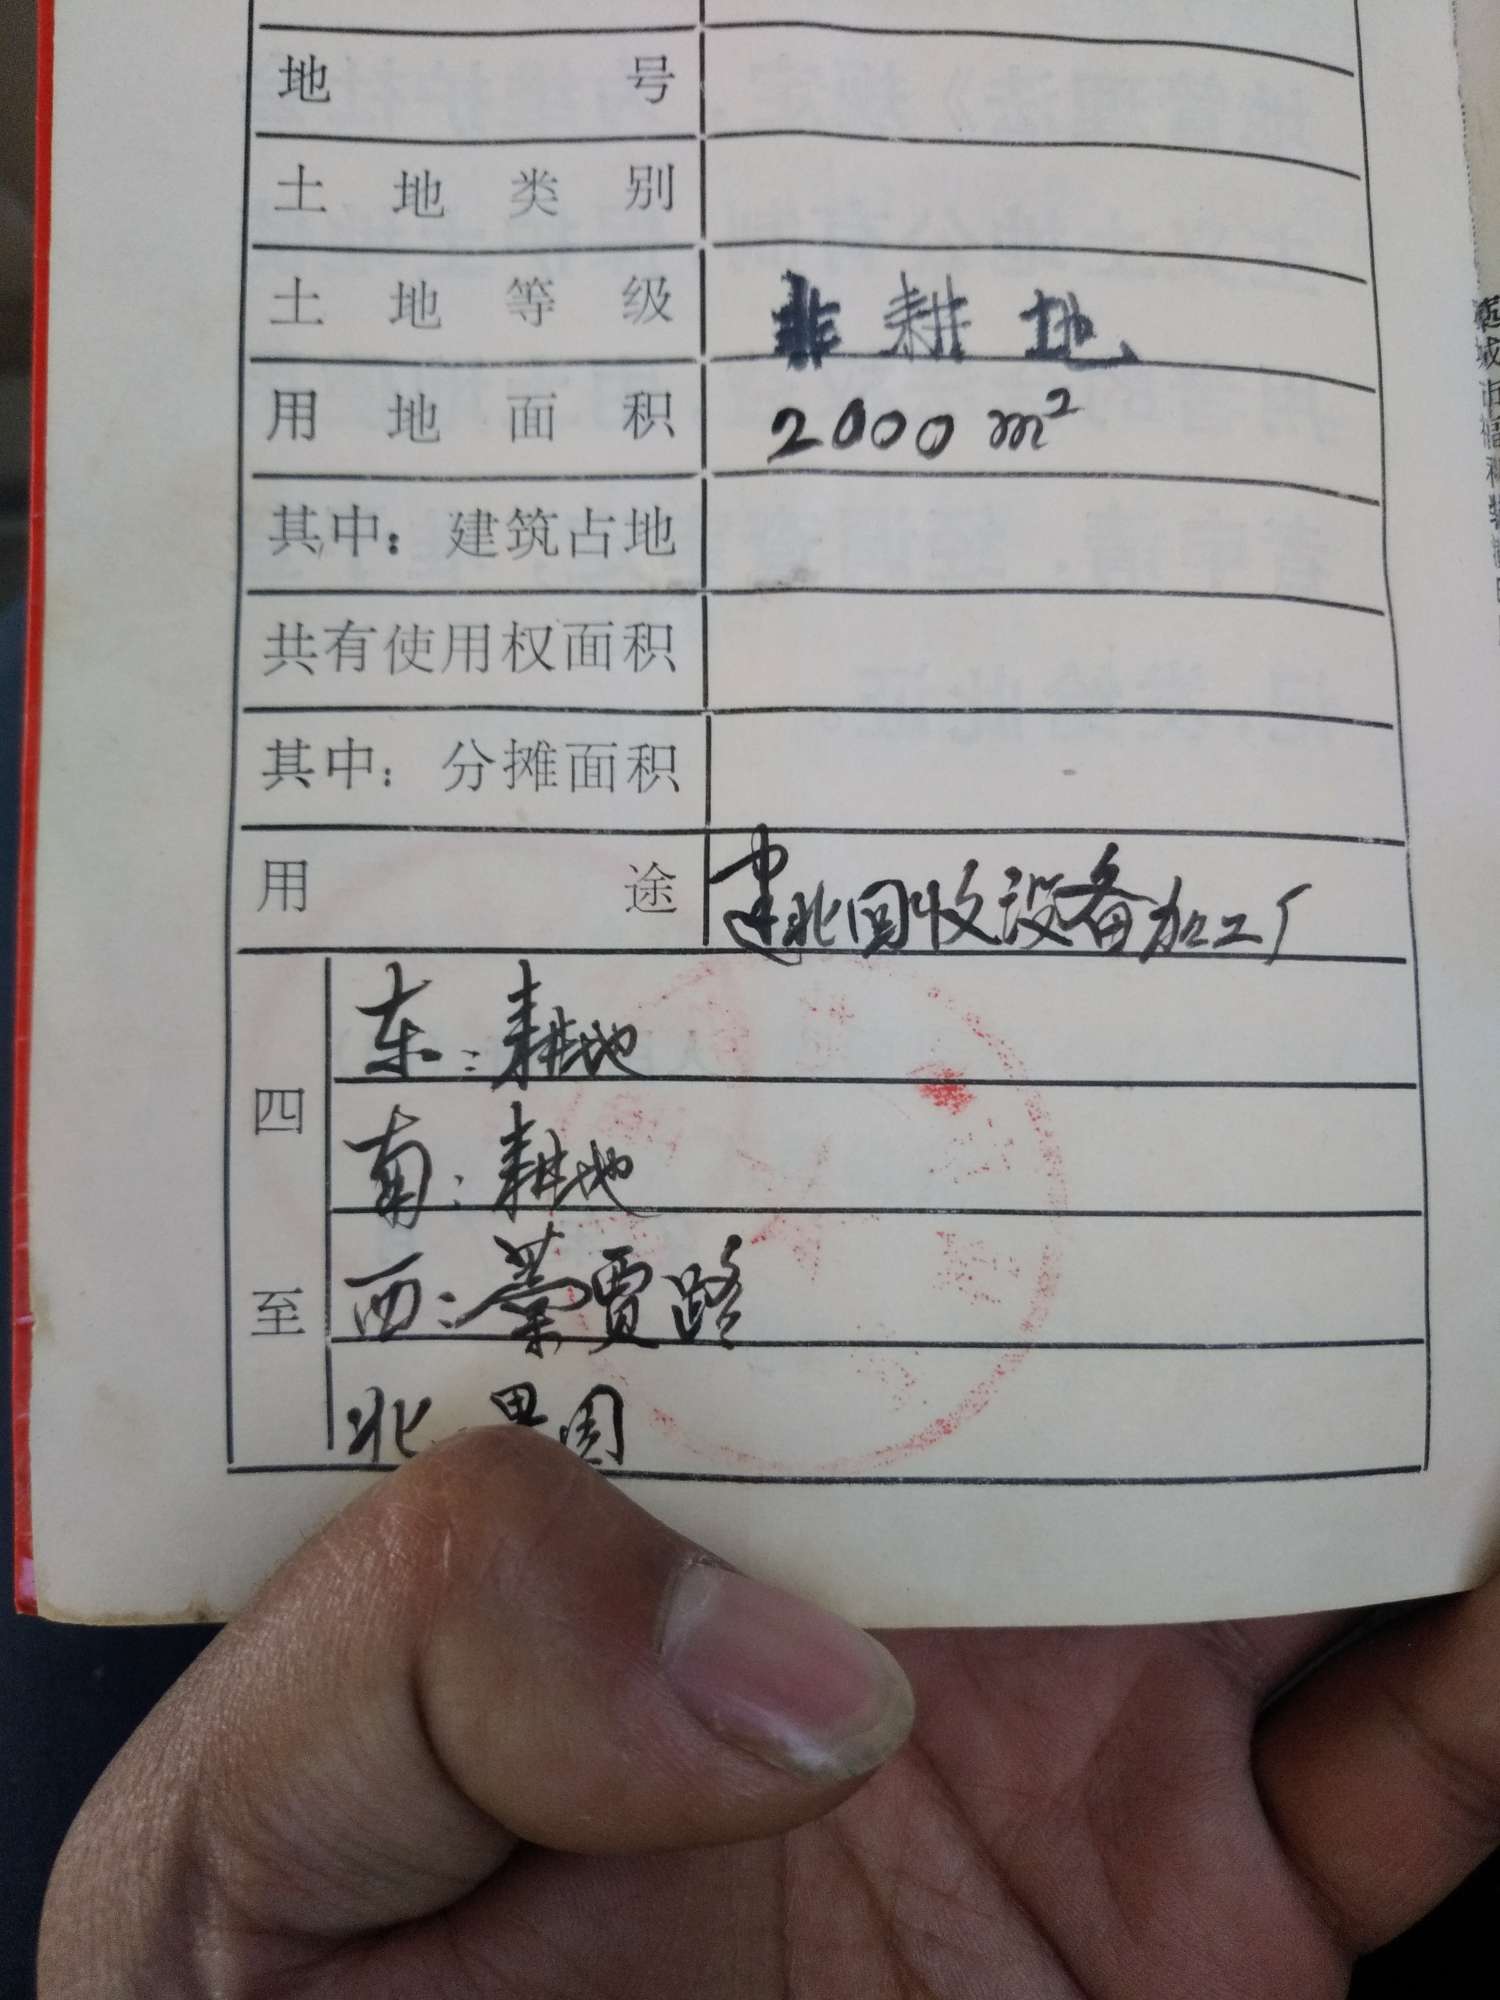 地号
土地类别
土地等级 非耕地
用地面积 2000m²
其中：建筑占地
共有使用权面积
其中：分摊面积
用途 建北回收设备加工厂
四至
东：耕地
南：耕地
西：贾路
北 果园